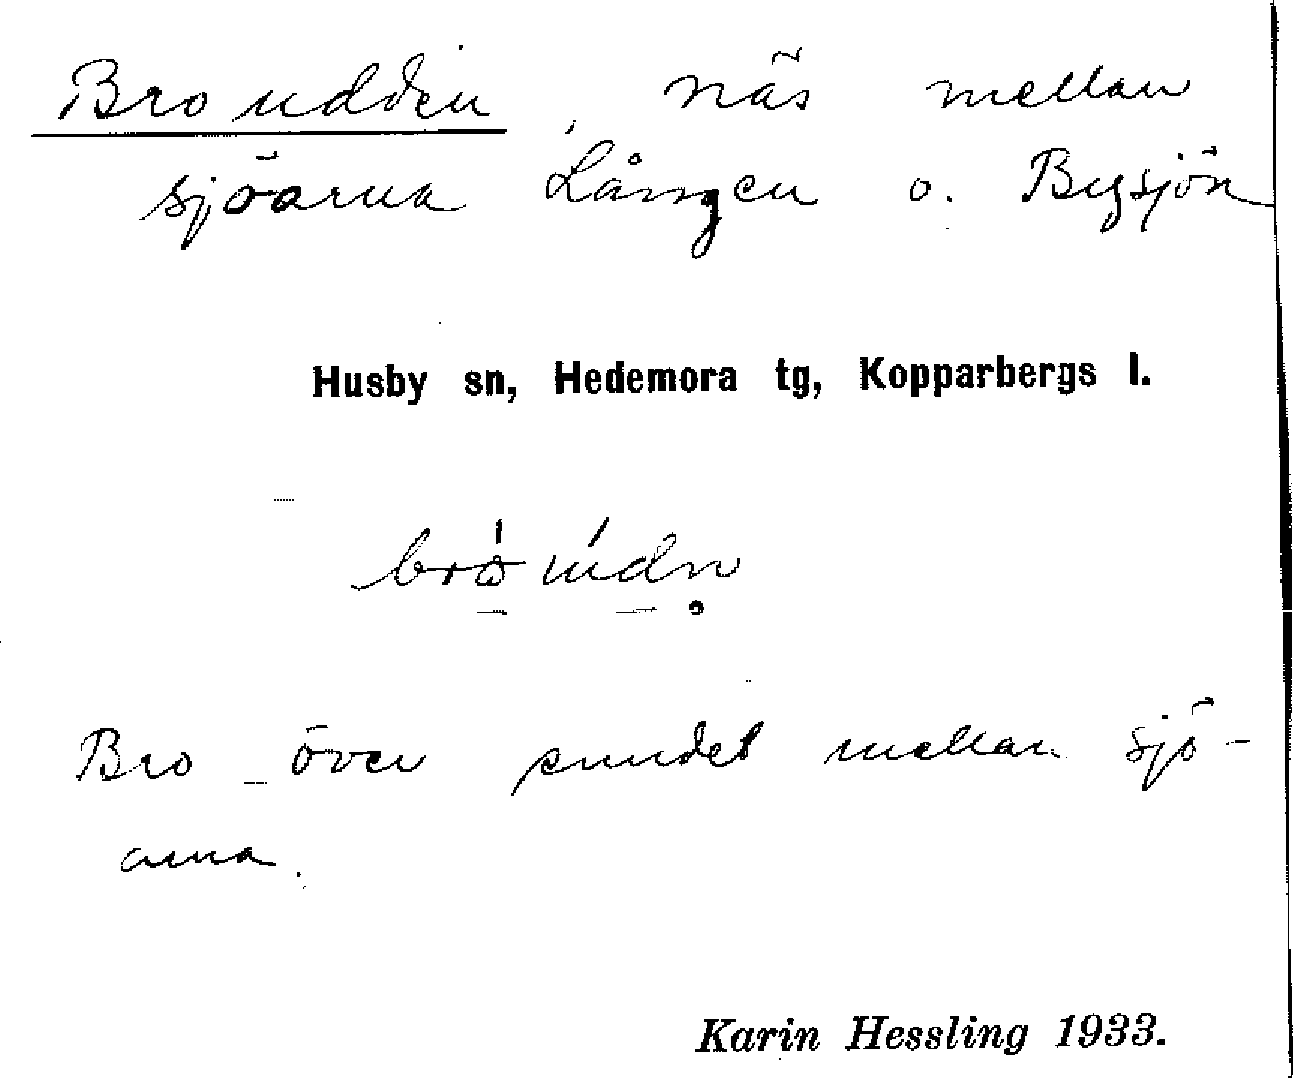 Broudden, näs mellan
sjöarna Lången o. Bysjön
Husby sn, Hedemora tg, Kopparbergs l.
Bro över sundet mellan sjö-
arna.
Karin Hessling 1933.